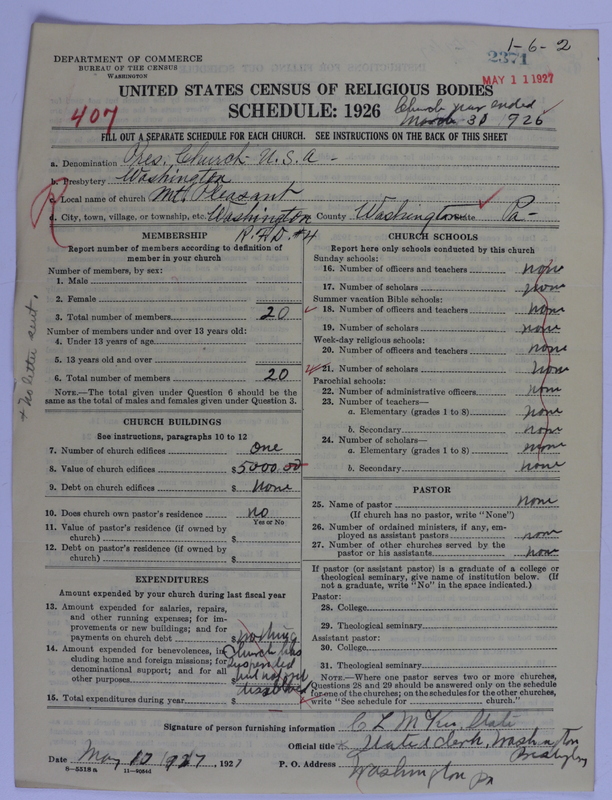 1-6-2
2371
DEPARTMENT OF COMMERCE
BUREAU OF THE CENSUS
WASHINGTON
MAY 11 1927
UNITED STATES CENSUS OF RELIGIOUS BODIES
SCHEDULE: 1926
Church year ended
March 31 1926
407
FILL OUT A SEPARATE SCHEDULE FOR EACH CHURCH. SEE INSTRUCTIONS ON THE BACK OF THIS SHEET
a. Denomination Pres. Church U.S.A-
b. Presbytery Washington
c. Local name of church Mt. Pleasant
d. City, town, village, or township, etc. Washington County Washington State Pa-
R.F.D. #4
R
MEMBERSHIP
Report number of members according to definition of
member in your church
Number of members, by sex:
1. Male
2. Female
3. Total number of members 20
Number of members under and over 13 years old:
4. Under 13 years of age
5. 13 years old and over
6. Total number of members 20
NOTE.—The total given under Question 6 should be the
same as the total of males and females given under Question 3.
x No letter sent.
CHURCH BUILDINGS
See instructions, paragraphs 10 to 12
7. Number of church edifices One
8. Value of church edifices $5000.00
9. Debt on church edifices $ None
10. Does church own pastor's residence? no
Yes or No
11. Value of pastor's residence (if owned by
church) $
12. Debt on pastor's residence (if owned by
church) $
EXPENDITURES
Amount expended by your church during last fiscal year
13. Amount expended for salaries, repairs,
and other running expenses; for im-
provements or new buildings; and for
payments on church debt $ nothing
14. Amount expended for benevolences, in-
cluding home and foreign missions; for
denominational support; and for all
other purposes $
Church has
suspended
but not yet
dissolved
15. Total expenditures during year $
CHURCH SCHOOLS
Report here only schools conducted by this church
Sunday schools:
16. Number of officers and teachers none
17. Number of scholars none
Summer vacation Bible schools:
18. Number of officers and teachers none
19. Number of scholars none
Week-day religious schools:
20. Number of officers and teachers none
21. Number of scholars none
Parochial schools:
22. Number of administrative officers none
23. Number of teachers—
a. Elementary (grades 1 to 8) none
b. Secondary none
24. Number of scholars—
a. Elementary (grades 1 to 8) none
b. Secondary none
PASTOR
25. Name of pastor none
(If church has no pastor, write "None")
26. Number of ordained ministers, if any, em-
ployed as assistant pastors none
27. Number of other churches served by the
pastor or his assistants none
If pastor (or assistant pastor) is a graduate of a college or
theological seminary, give name of institution below. (If
not a graduate, write "No" in the space indicated.)
Pastor:
28. College
29. Theological seminary
Assistant pastor:
30. College
31. Theological seminary
NOTE.—Where one pastor serves two or more churches,
Questions 28 and 29 should be answered only on the schedule
for one of the churches; on the schedules for the other churches,
write "See schedule for church."
Signature of person furnishing information C L McKee, State
Official title Stated Clerk, Washington
Presbytery
Date May 10 1927, 1927 P. O. Address Washington Pa
8-5518a 11-40344